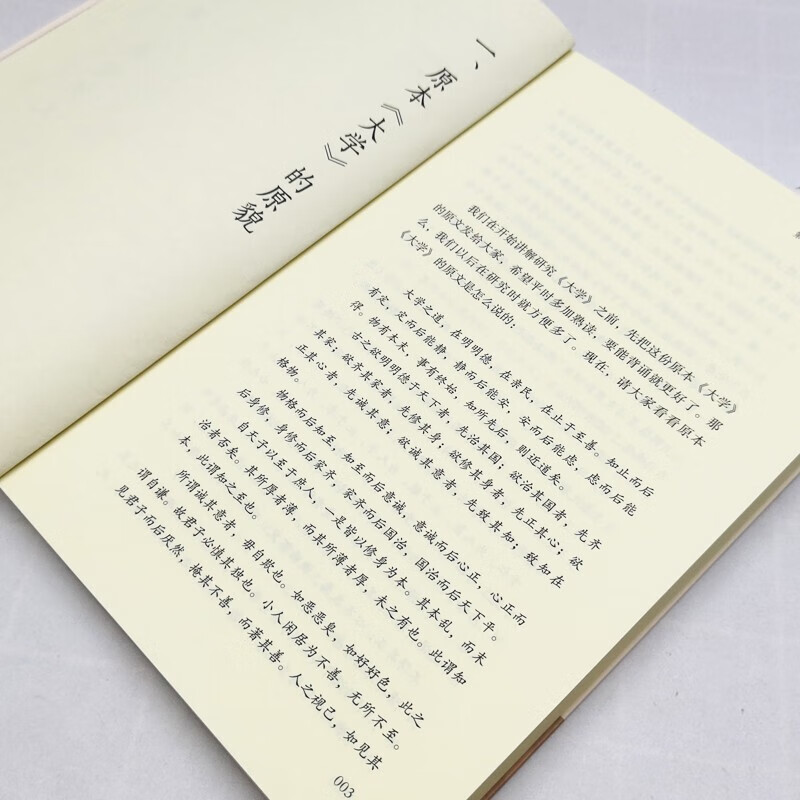 一、原本《大学》的原貌
我们在开始讲解研究《大学》之前，先把这份原本《大学》
的原文发给大家，希望平时多加熟读，要能背诵就更好了。那
么，我们以后在研究时就方便多了。现在，请大家看看原本
《大学》的原文是怎么说的：
大学之道，在明明德，在亲民，在止于至善。知止而后
有定，定而后能静，静而后能安，安而后能虑，虑而后能
得。物有本末，事有终始，知所先后，则近道矣。
古之欲明明德于天下者，先治其国；欲治其国者，先齐
其家；欲齐其家者，先修其身；欲修其身者，先正其心；欲
正其心者，先诚其意；欲诚其意者，先致其知；致知在
格物。
物格而后知至，知至而后意诚，意诚而后心正，心正而
后身修，身修而后家齐，家齐而后国治，国治而后天下平。
自天子以至于庶人，一是皆以修身为本。其本乱，而末
治者否矣。其所厚者薄，而其所薄者厚，未之有也。此谓知
本，此谓知之至也。
所谓诚其意者，毋自欺也。如恶恶臭，如好好色，此之
谓自谦。故君子必慎其独也。小人闲居为不善，无所不至。
见君子而后厌然，掩其不善，而著其善。人之视己，如见其
003